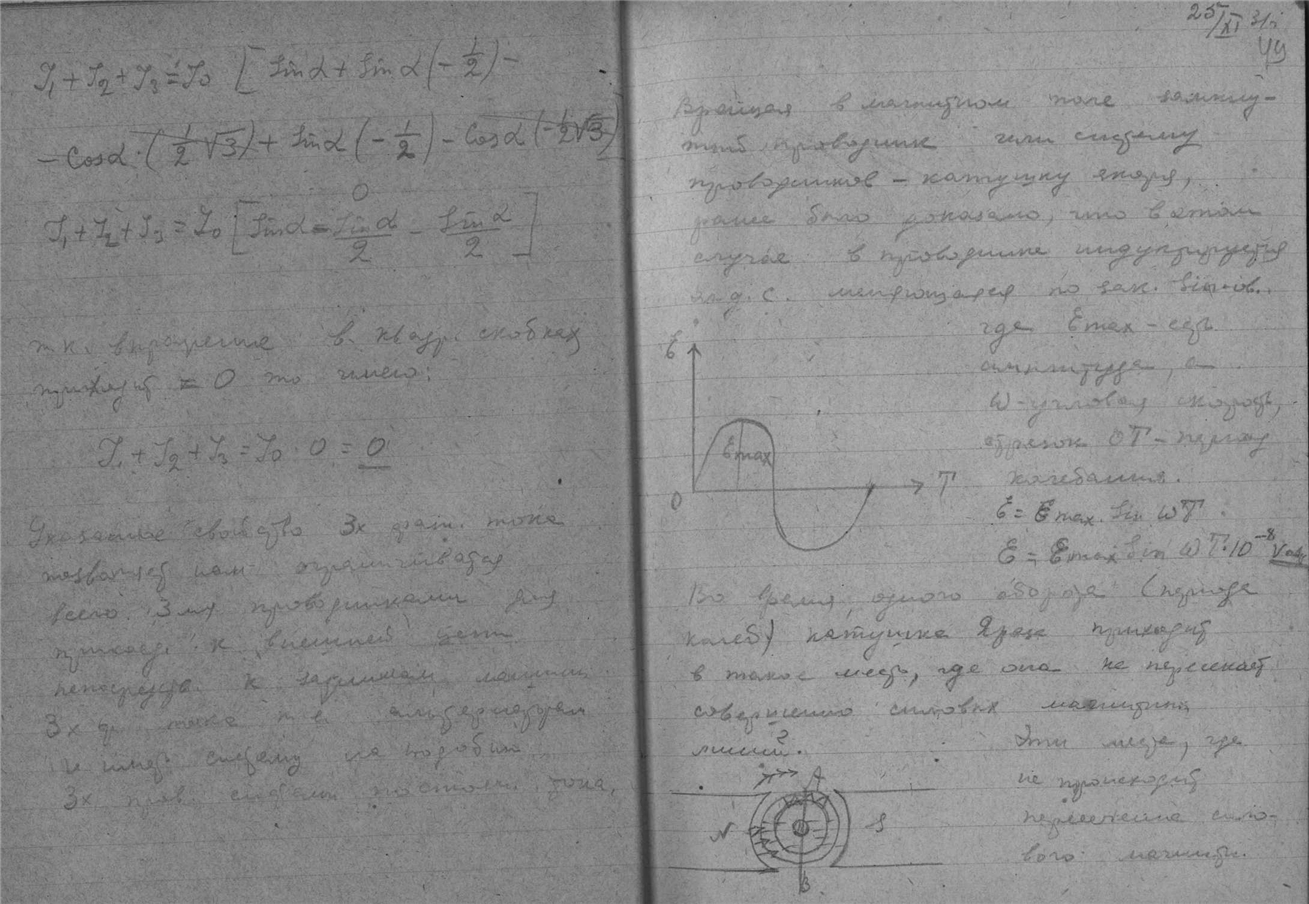 J₁ + J₂ + J₃ = J₀ [ Sin α + Sin α (- 1/2) -
- Cos α · (1/2 √3) + Sin α (- 1/2) - Cos α (- 1/2 √3)
0
J₁ + J₂ + J₃ = J₀ [ Sin α - Sin α/2 - Sin α/2 ]
т.к. выражение в квадр. скобках
приходит = 0 то имею:
J₁ + J₂ + J₃ = J₀ · 0 = 0
Указанное свойство 3х фазн. тока
позволяет нам ограничиватся
всего 3мя проводниками для
присоед. к внешней цепи
непосредств. к зажимам машины
3х ф. тока т.е. альтернаторам
и имет систему на подобии
3х пров. системы постоян. тока.
25/XI 31г
49
Вращая в магнитном поле замкну-
тый проводник или систему
проводников – катушку якоря,
ранее было доказано, что в этом
случае в проводнике индуктируется
эл.д.с. меняющаяся по зак. Sinов..
где Ɛmax – есть
амплитуда, а
ω – угловая скорость,
отрезок OT – период
колебания.
Ɛ
Ɛmax
0
T
Ɛ = Ɛmax. Sin ωT.
Ɛ = Ɛmax Sin ωT·10⁻⁸ Volt
Во время одного оборота (периода
колеб) катушка якоря приходит
в такое место, где она не пересекает
совершенно силовых магнитных
линий.
Эти места, где
не происходит
пересечение сило-
вого магнитн.
A
N
S
B